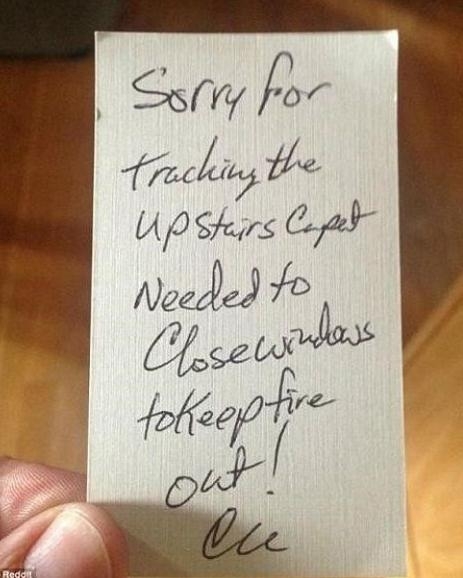 Sorry for
tracking the
upstairs Carpet
Needed to
Close windows
to Keep fire
out!
Reddit